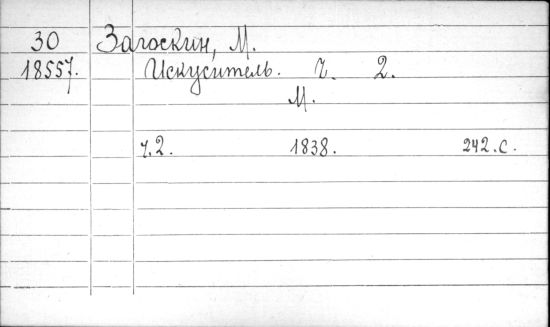 30 Загоскин, М.
18557. Искуситель. Ч. 2.
М.
ч. 2. 1838. 242. с.